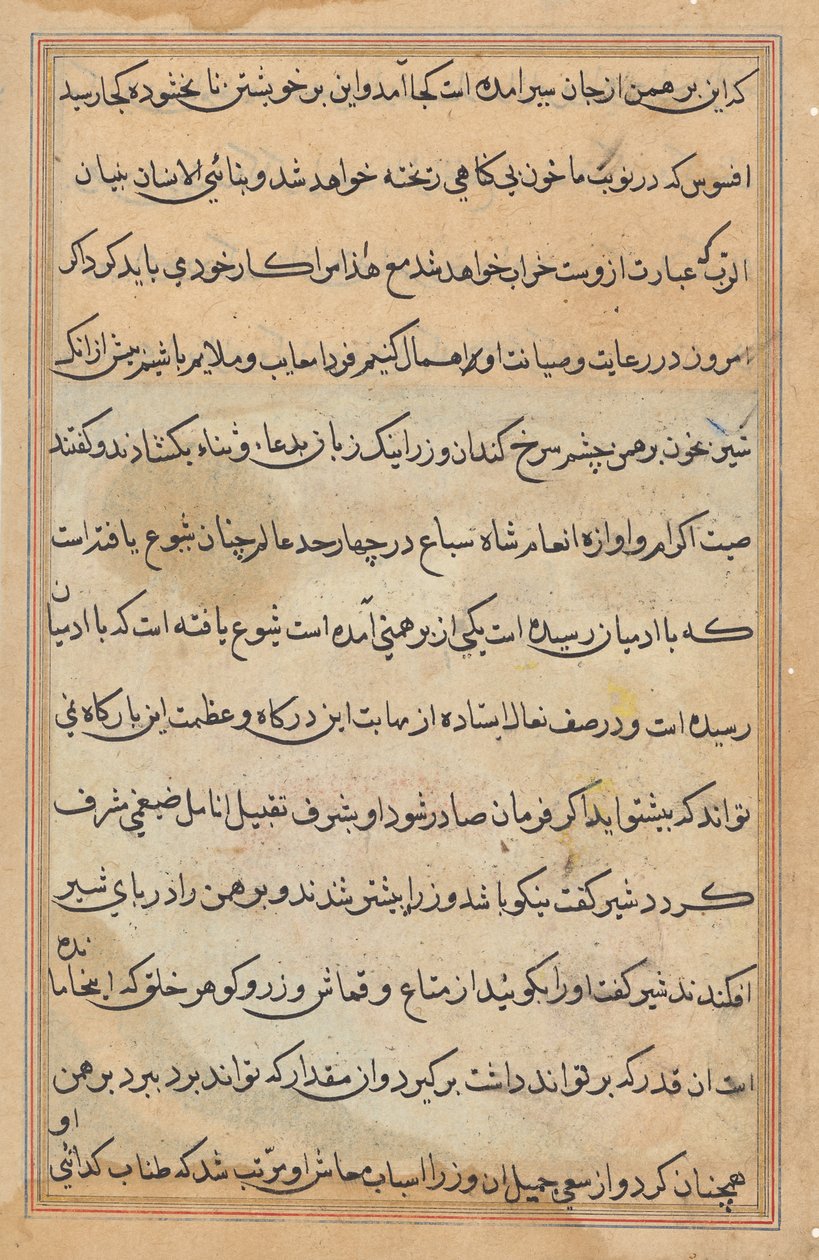 که این برهمن از جان سیر امده است کجا آمد و این بر خویشتن نا بخشوده کجا رسید
افسوس که در نوبت ما خون بی کناهی ریخته خواهد شد و بنائی الانسان بنیان
الرّب که عبارت ازوست خراب خواهد شد مع هٰذا مرا کار خود می باید کرد اکر
امروز در رعایت و صیانت او اهمال کنیم فردا معایب و ملایم باشیم پیش از انک
شیر بخون برهمن چشم سرخ کند ان وزرا نیک زبان بدعاء و ثناء بکشادند و کفتند
صیت اکرام و اوازه انعام شاه سباع در چهار حد عالم چنان شیوع یافته است
که با ادمیان رسیده است یکی از برهمنی آمده است شیوع یافته است که با ادمیان
رسیده است و در صف نعال ایستاده از مهابت این درکاه و عظمت این بارکاه نمی
تواند که بیشتر اید اکر فرمان صادر شود او بشرف تقبیل انامل ضیغمی مشرف
کردد شیر کفت نیکو باشد وزرا پیشتر شدند و برهمن را در پای شیر
افکندند شیر کفت او را بکوئید از متاع و قماش و زر و کوهر خلق که اینجا مانده
است ان قدر که بر تواند داشت برکیرد و ان مقدار که تواند برد ببرد برهمن
همچنان کرد و از سعی جمیل ان وزرا اسباب معاش او مرّتب شد که طناب کدائی او